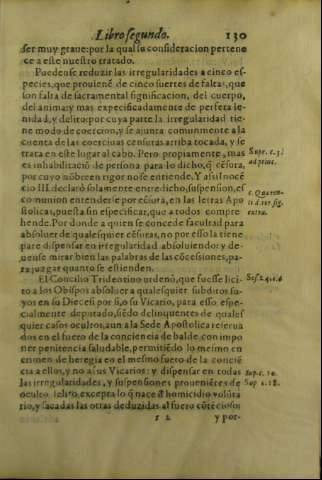 Libro segundo. 130
ser muy graue: por la qual su consideracion pertene
ce a este nuestro tratado.
Puedense reduzir las irregularidades a cinco es-
pecies, que prouienē de cinco suertes de faltas, que
son falta de sacramental significacion, del cuerpo,
del anima: y mas especificadamente de perfeta le-
nidad, y delito: por cuya parte la irregularidad tie-
ne modo de coercion, y se ajunta comunmente a la
cuenta de las coercitiuas censuras arriba tocada, y se
trata en este lugar al cabo. Pero propiamente, mas
es inhabilitaciō de persona para lo dicho, q̄ cēsura,
por cuyo nōbre en rigor no se entiende. Y assi Inocē
cio III. declarò solamente entredicho, suspension, es
comunion entenderse por cēsura, en las letras Apo
stolicas, puesta sin especificar, que a todos compre
hende. Por donde a quien se concede facultad para
absoluer de qualesquier cēsuras, no por esso la tiene
para dispensar en irregularidad absoluiendo: y de-
uense mirar bien las palabras de las cōcessiones, pa-
ra juzgar quanto se estienden.
El Concilio Tridentino ordenò, que fuesse lici-
to a los Obispos absoluer a qualesquier subditos su-
yos en su Diocesi por si, o su Vicario, para esso espe-
cialmente deputado, siēdo delinquentes de quales
quier casos ocultos, aun a la Sede Apostolica reserua
dos en el fuero de la conciencia de balde, con impo
ner penitencia saludable, permitiēdo lo mesmo en
crimen de heregia en el mesmo fuero de la conciē
cia a ellos, y no a sus Vicarios: y dispensar en todas
las irregularidades, y suspensiones prouenietes de
oculto delito, excepta lo q̄ nace del homicidio volūta
rio, y sacadas las otras deduzidas al fuero cōtēcioso:
s 2 y por-
Supr. c. 3.
ad princ.
c. Quæren-
ti d ver. sig.
extra.
Ses. 24. c. 6
Sup. c. 10.
Sup. c. 18.